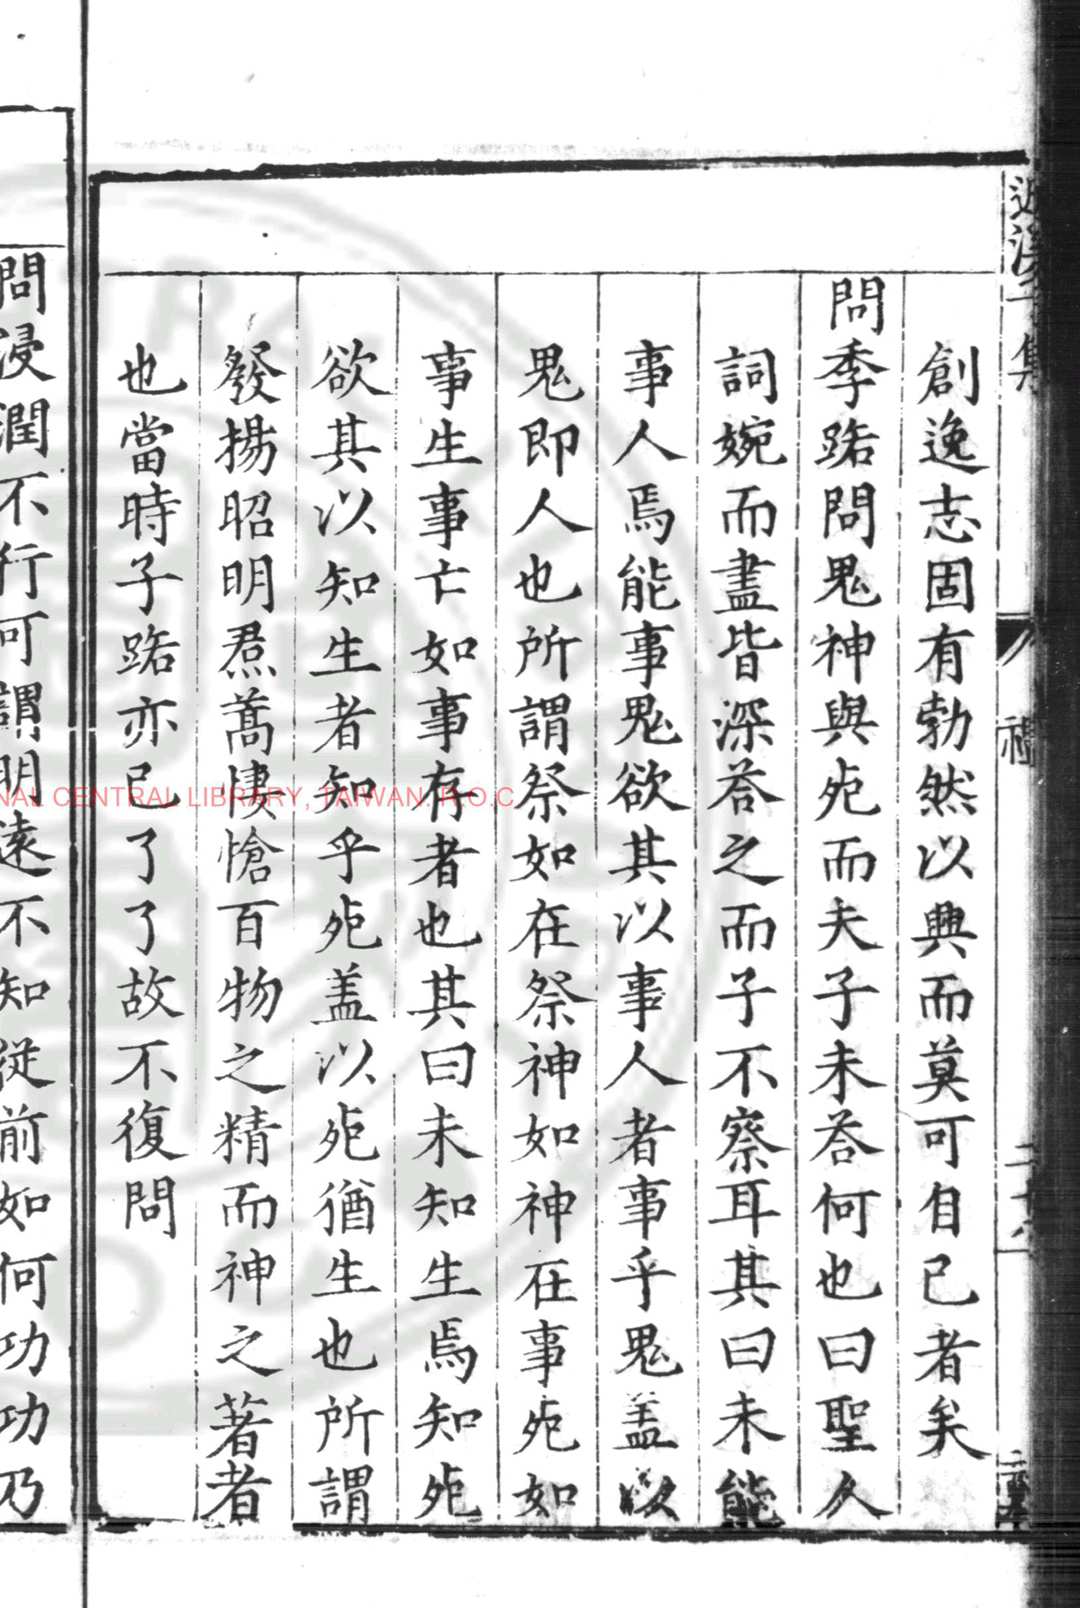 近溪子集
禮
創逸志固有勃然以興而莫可自已者矣
問季路問鬼神與死而夫子未荅何也曰聖人
詞婉而盡皆深荅之而子不察耳其曰未能
事人焉能事鬼欲其以事人者事乎鬼盖以
鬼即人也所謂祭如在祭神如神在事死如
事生事亡如事存者也其曰未知生焉知死
欲其以知生者知乎死盖以死猶生也所謂
發揚昭明焄蒿悽愴百物之精而神之著者
也當時子路亦已了了故不復問
問浸潤不行可謂明遠不知從前如何功功乃
NAL CENTRAL LIBRARY, TAIWAN. R.O.C